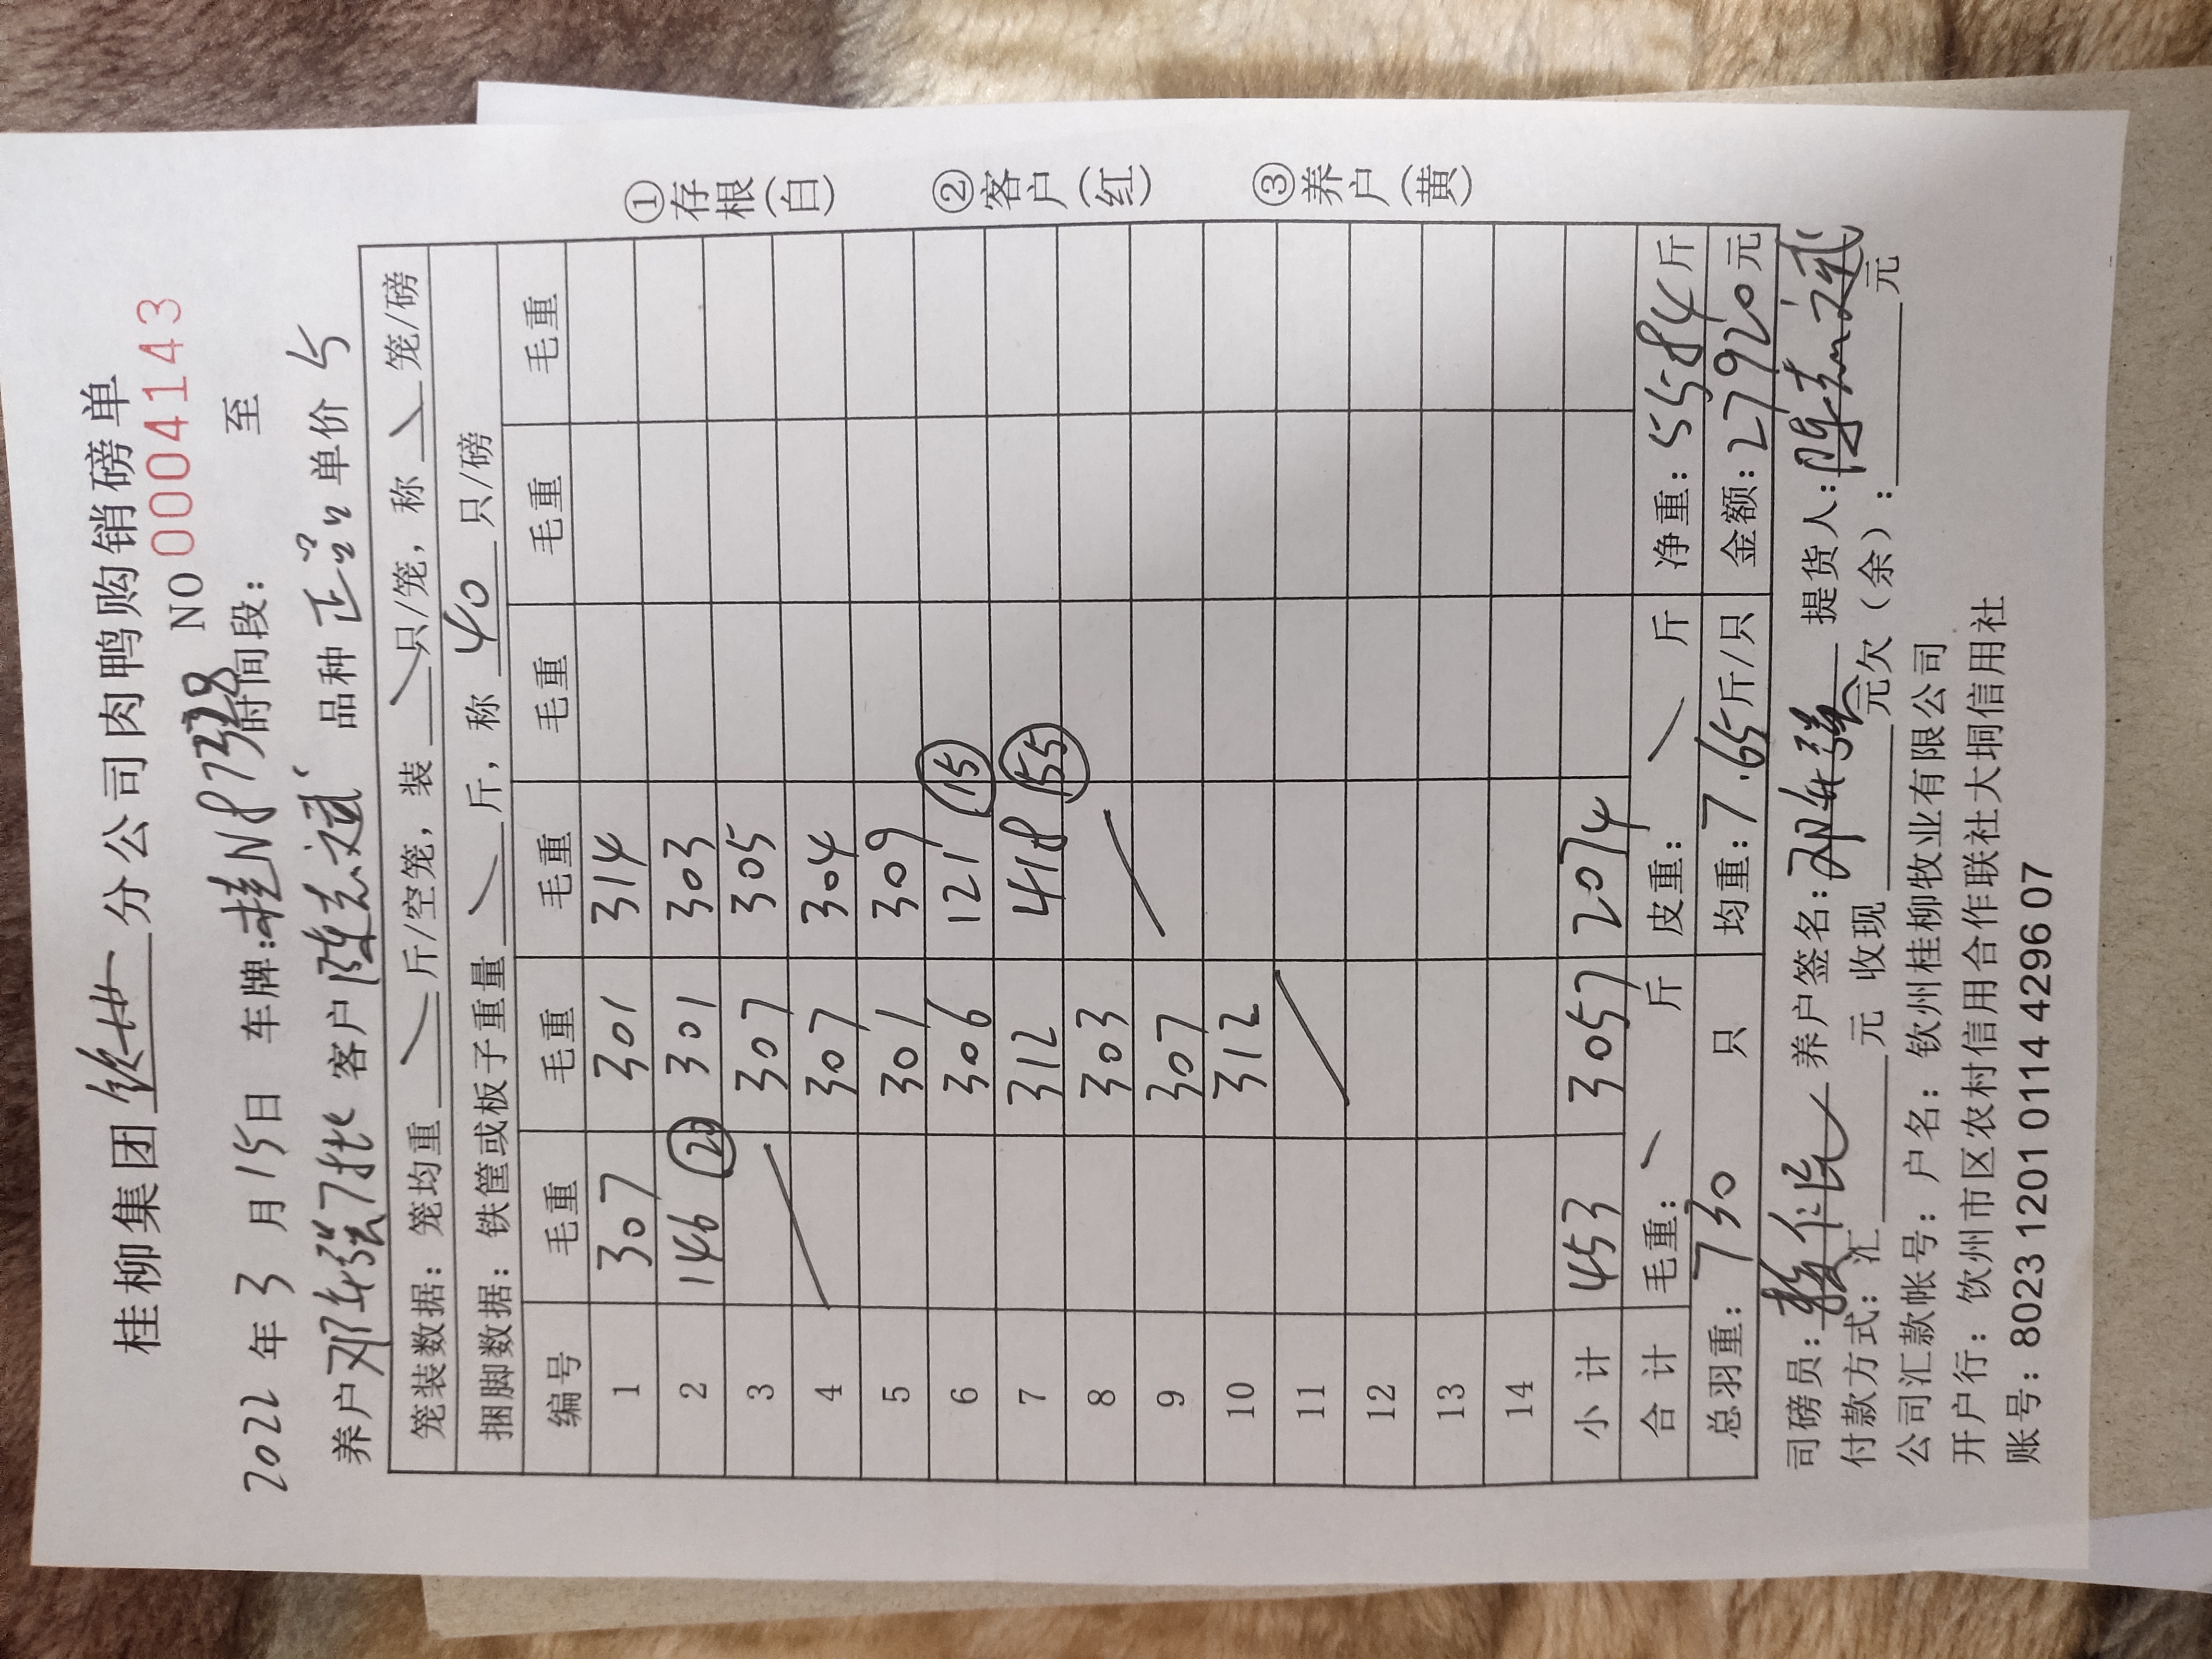 桂柳集团 钦州 分公司肉鸭购销磅单
NO 0004143
2022 年 3 月 15 日 车牌: 桂N87328 时间段: 至
养户 邓年强7批 客户 陈志斌 品种 正品 单价 5
笼装数据: 笼均重 斤/空笼, 装 只/笼, 称 笼/磅
捆脚数据: 铁筐或板子重量 斤, 称 40 只/磅
编号 毛重 毛重 毛重 毛重 毛重 毛重
1 307 301 314
2 146 (20) 301 303
3 307 305
4 307 304
5 301 309
6 306 121 (15)
7 312 418 (55)
8 303
9 307
10 312
11
12
13
14
小计 453 3057 2074
合计 毛重: 斤 皮重: 斤 净重: 5584斤
总羽重: 730 只 均重: 7.65斤/只 金额: 27920元
①存根(白)
②客户(红)
③养户(黄)
司磅员: 养户签名: 邓年强 提货人: 陈志斌
付款方式: 汇 元 收现 元欠(余): 元
公司汇款帐号: 户名: 钦州桂柳牧业有限公司
开户行: 钦州市区农村信用合作联社大垌信用社
账号: 8023 1201 0114 4296 07